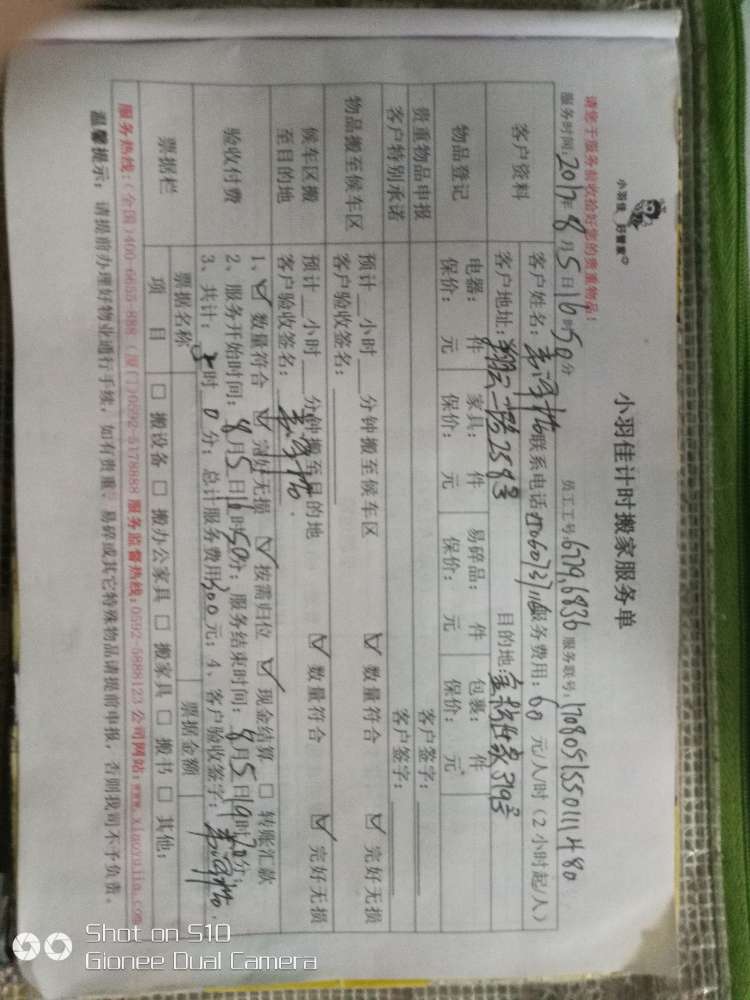 小羽佳 好管家
小羽佳计时搬家服务单
请您于服务前收拾好您的贵重物品!
员工工号:6779,6836 服务联号:
服务时间:2017年8月5日16时50分
客户资料 客户姓名: 联系电话 服务费用:60元/人/时(2小时起/人)
客户地址:翔云一路258号 目的地: 319号
物品登记 电器: 件 家具: 件 易碎品: 件 包裹: 件
保价: 元 保价: 元 保价: 元 保价: 元
贵重物品申报 客户签字:
客户特别承诺 客户签字:
物品搬至候车区 预计__小时__分钟搬至候车区 ☑ 数量符合 ☑ 完好无损
客户验收签名:
候车区搬至目的地 预计__小时__分钟搬至目的地 ☑ 数量符合 ☑ 完好无损
客户验收签名:
验收付费 1、☑ 数量符合 ☑ 完好无损 ☑ 按需归位 ☑ 现金结算 □ 转账汇款
2、服务开始时间:8月5日16时50分;服务结束时间:8月5日19时20分;
3、共计: 时0分;总计服务费用200元;4、客户验收签字:
票据栏 票据名称 票据金额
项 目 □ 搬设备 □ 搬办公家具 □ 搬家具 □ 搬书 □ 其他:
服务热线:(全国)400-6655-888 (厦门)0592-5178888 服务监督热线:0592-5888123 公司网站:www.xiaoyujia.com
温馨提示:请提前办理好物业通行手续,如有贵重、易碎或其它特殊物品请提前申报,否则我司不予负责。
Shot on S10
Gionee Dual Camera